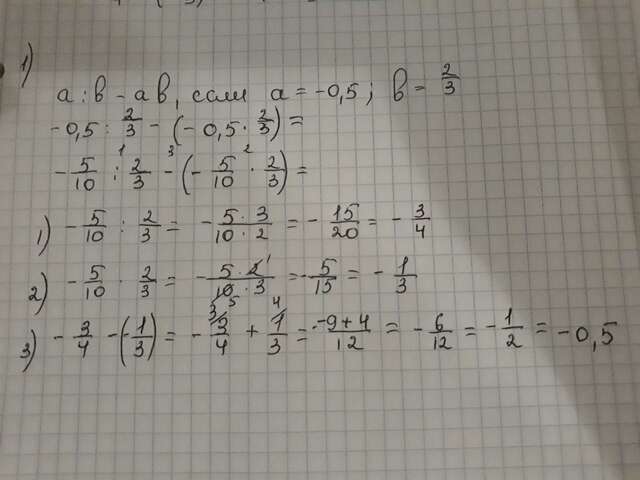 1)
a : в - aв, если a = -0,5; в = 2/3
-0,5 : 2/3 - (-0,5 · 2/3) =
-5/10 :¹ 2/3 -³ (-5/10 ·² 2/3) =
1) -5/10 : 2/3 = -5·3/10·2 = -15/20 = -3/4
2) -5/10 · 2/3 = -5·2¹/10₅·3 = -5/15 = -1/3
3) -3/4 - (-1/3) = -³3/4 + ⁴1/3 = -9+4/12 = -6/12 = -1/2 = -0,5